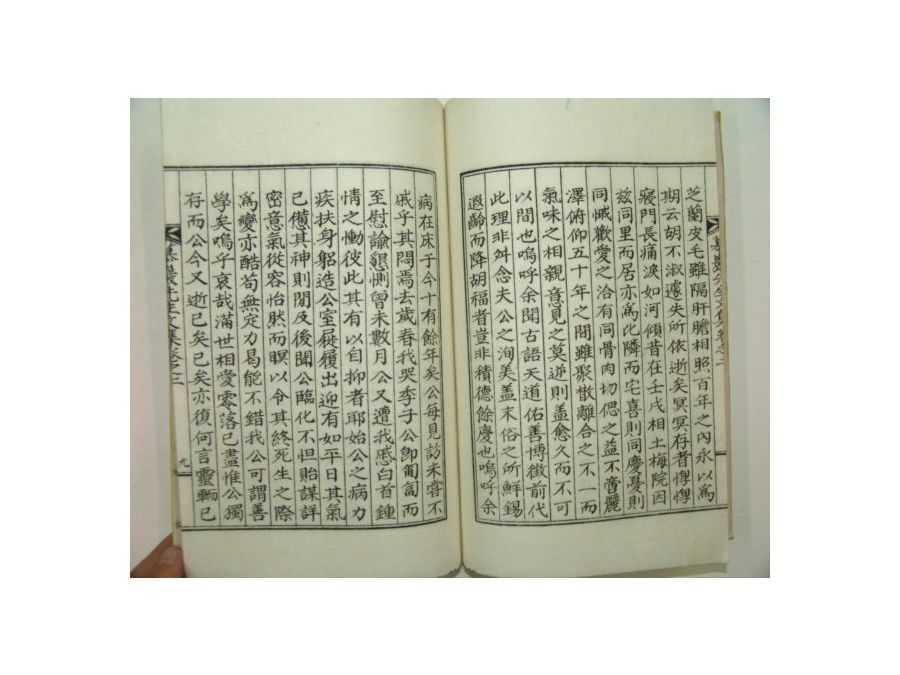 芝蘭皮毛雖隔肝膽相照百年之內永以爲
期云胡不淑遽失所依逝矣冥冥存者惸惸
寢門長痛淚如河傾昔在壬戌相土梅院因
玆同里而居亦爲比隣而宅喜則同慶憂則
同慽歡愛之洽有同骨肉切偲之益不啻麗
澤俯仰五十年之間雖聚散離合之不一而
氣味之相親意見之莫逆則盖愈久而不可
以間也嗚呼余聞古語天道佑善博徵前代
此理非舛念夫公之洵美盖末俗之所鮮錫
遐齡而降胡福者豈非積德餘慶也嗚呼余
病在床于今十有餘年矣公每見訪未嘗不
戚乎其悶焉去歲春我哭季子公卽匍匐而
至慰諭懇惻曾未數月公又遭我慼白首鍾
情之慟彼此其有以自抑者耶始公之病力
疾扶身躬造公室屣履出迎有如平日其氣
已憊其神則閒及後聞公臨化不怛貽謀詳
密意氣從容怡然而瞑以令其終死生之際
爲變亦酷苟無定力曷能不錯我公可謂善
學矣嗚乎哀哉滿世相愛零落已盡惟公獨
存而公今又逝已矣已矣亦復何言靈輀已
巖先生文集卷之二
九